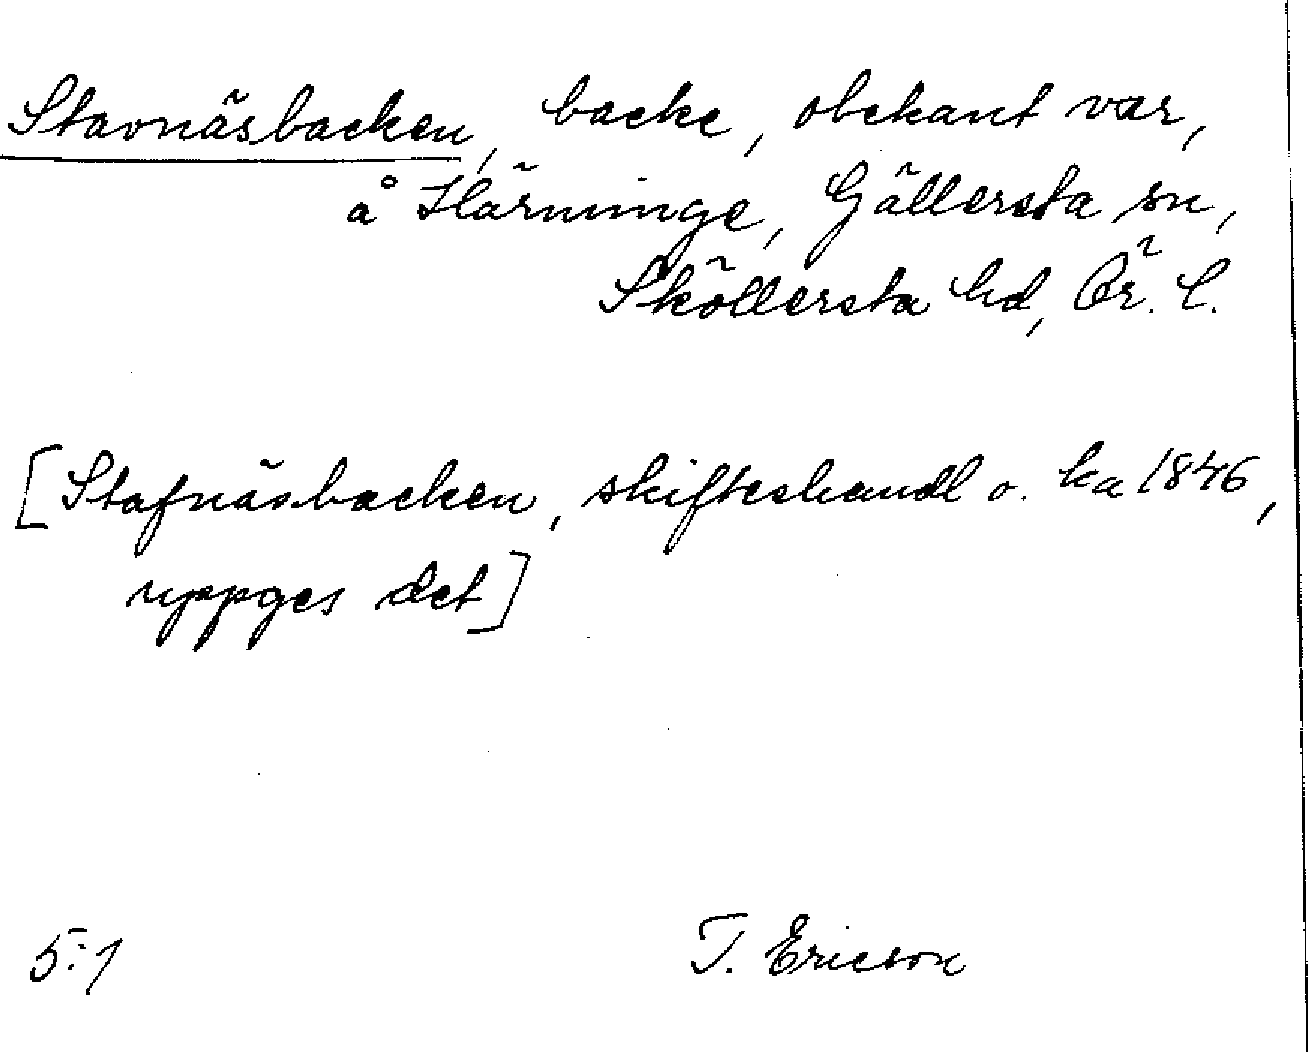 Stavnäsbacken, backe, obekant var,
å Härminge, Gällersta sn,
Sköllersta hd, Ör. l.
[Stafnäsbacken, skifteshandl o. ka 1846,
uppges det]
5:1 T. Ericson